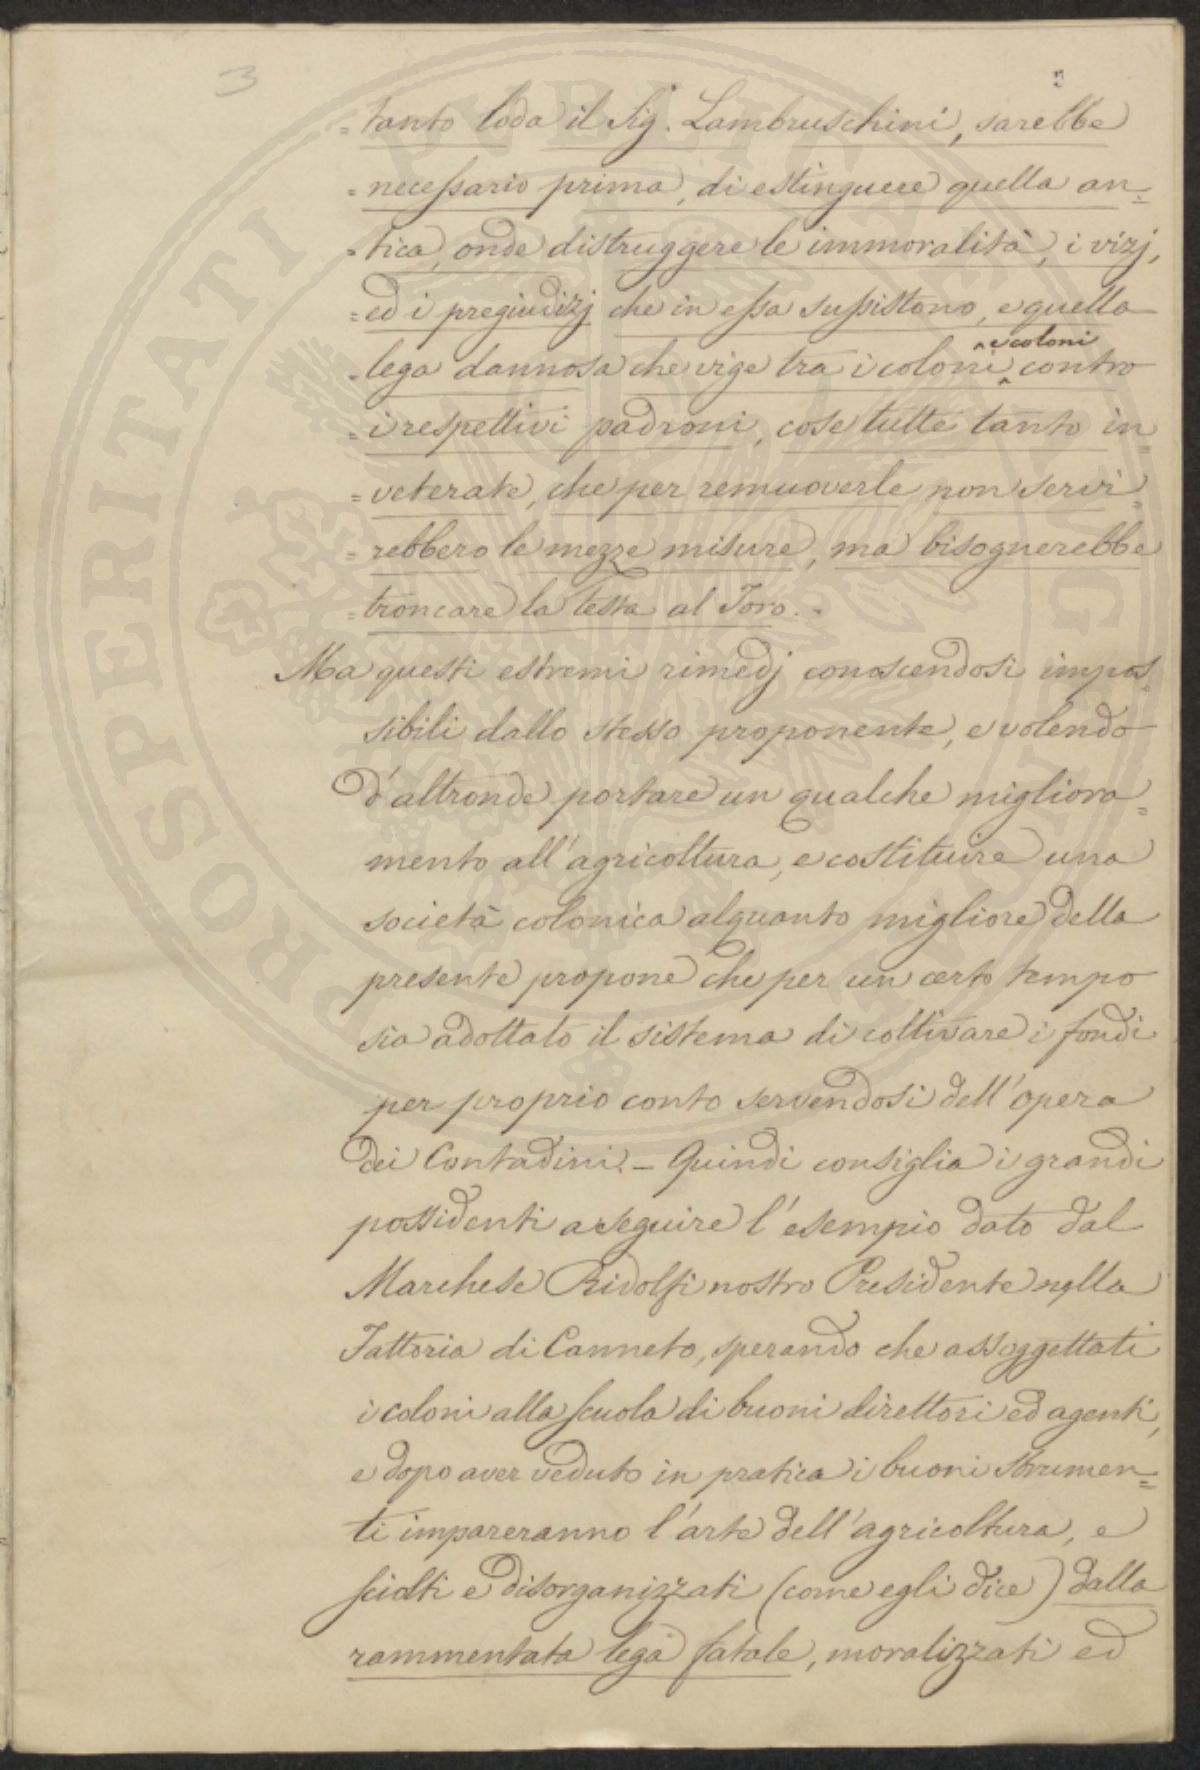 3
=tanto loda il Sig. Lambruschini, sarebbe
=necessario prima, di estinguere quella an=
=tica, onde distruggere le immoralità, i vizj,
=ed i pregiudizj che in essa sussistono, e quella
=lega dannosa che vige tra i coloni ^e coloni contro
=i respettivi padroni, cose tutte tanto in=
=veterate, che per remuoverle non servi=
=rebbero le mezze misure, ma bisognerebbe
=troncare la testa al Toro.=
Ma questi estremi rimedj conoscendosi impos=
sibili dallo stesso proponente, e volendo
d'altronde portare un qualche migliora=
mento all'agricoltura, e costituire una
società colonica alquanto migliore della
presente propone che per un certo tempo
sia adottato il sistema di coltivare i fondi
per proprio conto servendosi dell'opera
dei Contadini. – Quindi consiglia i grandi
possidenti a seguire l'esempio dato dal
Marchese Ridolfi nostro Presidente nella
Fattoria di Canneto, sperando che assoggettati
i coloni alla scuola di buoni direttori ed agenti,
e dopo aver veduto in pratica i buoni strumen=
ti impareranno l'arte dell'agricoltura, e
sciolti e disorganizzati (come egli dice) dalla
rammentata lega fatale, moralizzati ed
PROSPERITATI PVBLICAE